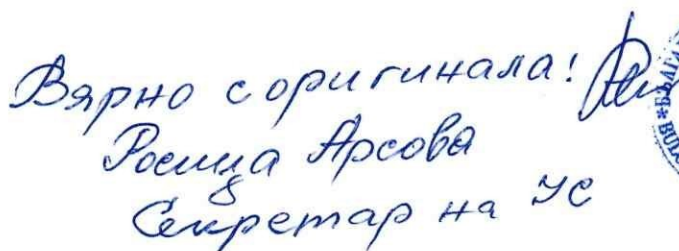 Вярно с оригинала!
Росица Арсова
Секретар на УС